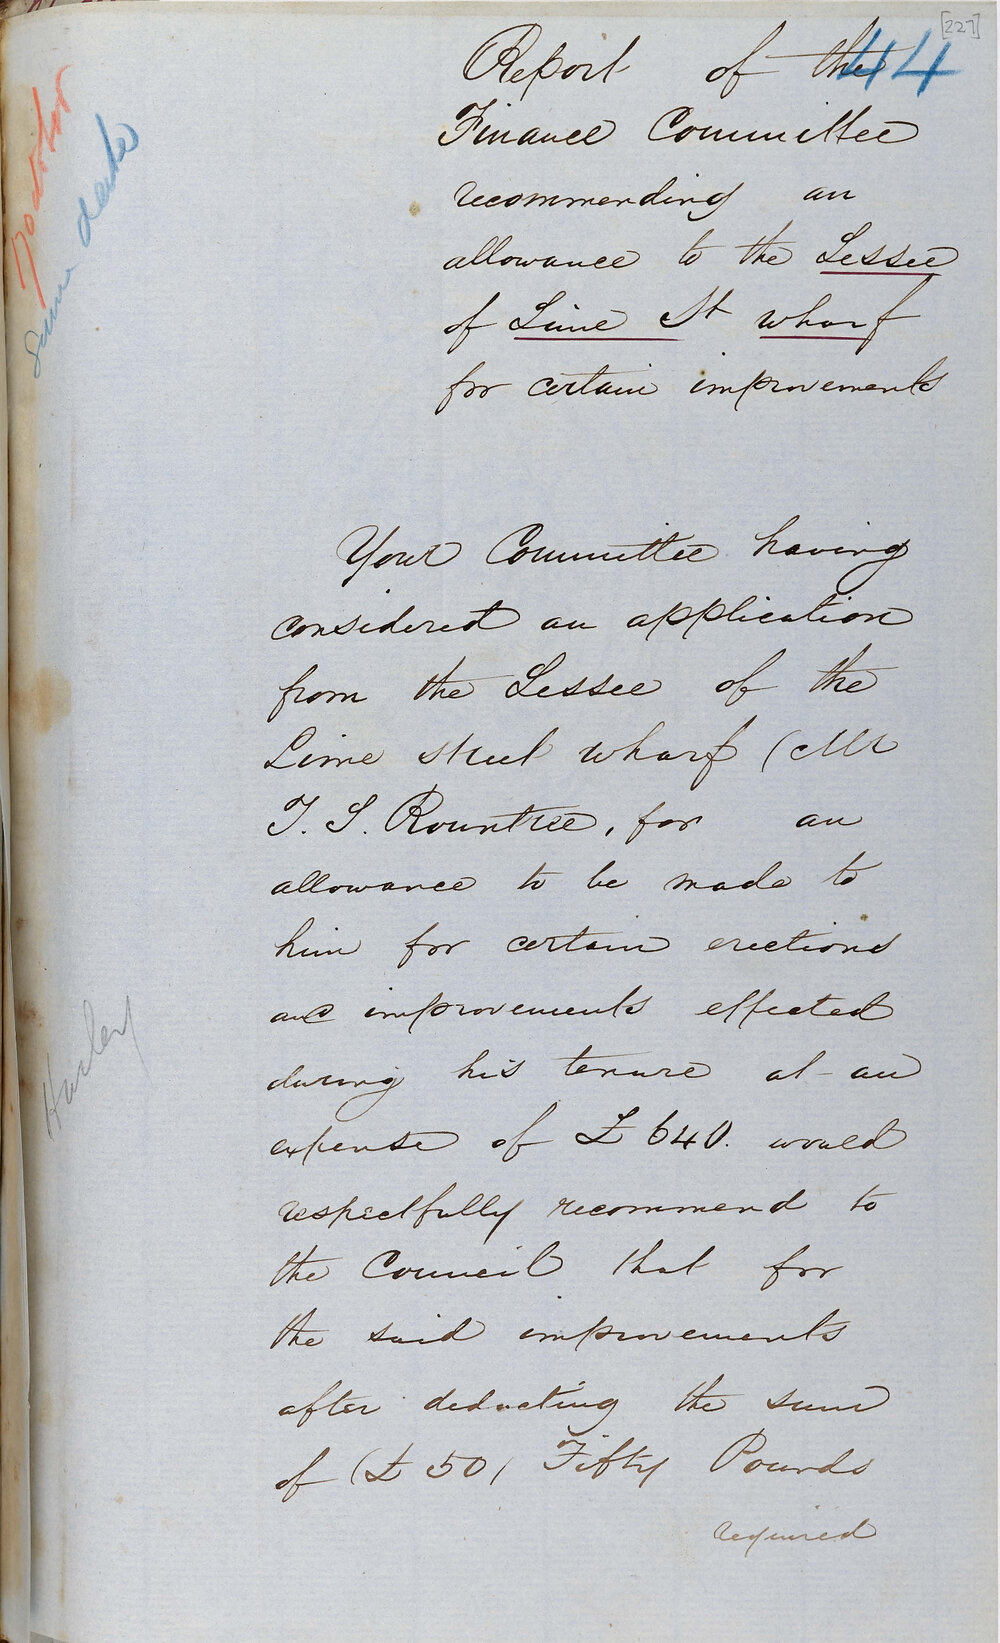 [227]
44
Report of the
Finance Committee
recommending an
allowance to the Lessee
of Lime St wharf
for certain improvements
same date
Your Committee having
considered an application
from the Lessee of the
Lime Street Wharf (Mr
T. S. Rountree, for an
allowance to be made to
him for certain erections
and improvements effected
during his tenure at an
expense of £640. would
respectfully recommend to
the Council that for
the said improvements
after deducting the sum
of (£50) Fifty Pounds
required
Hurley